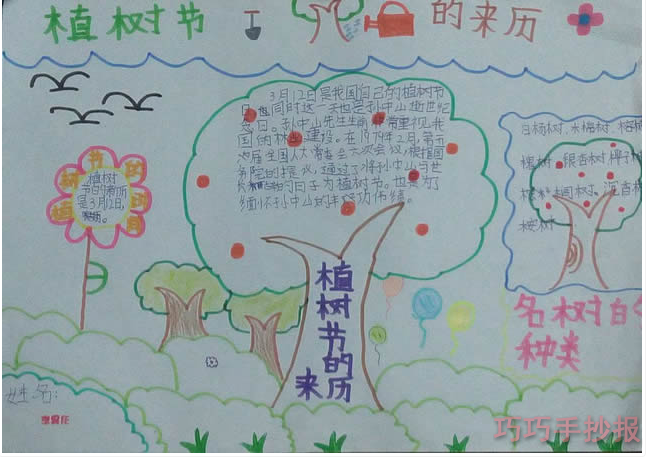 植树节
的来历
3月12日是我国自己的植树节
日,但同时这一天也是孙中山逝世纪
念日。孙中山先生生前非常重视我
国的林业建设。在1979年2月,第五
届全国人大常委会六次会议,根据国
务院的提议,通过了将孙中山逝世
的日子为植树节。也是为了
缅怀孙中山的丰功伟绩。
植树节的时间
植树
节的时间
是3月12日,
白杨树,水杨树,梧桐
槐树,银杏树,椰子树
桉树
植树节的来历
名树的
种类
姓名:
巧巧手抄报